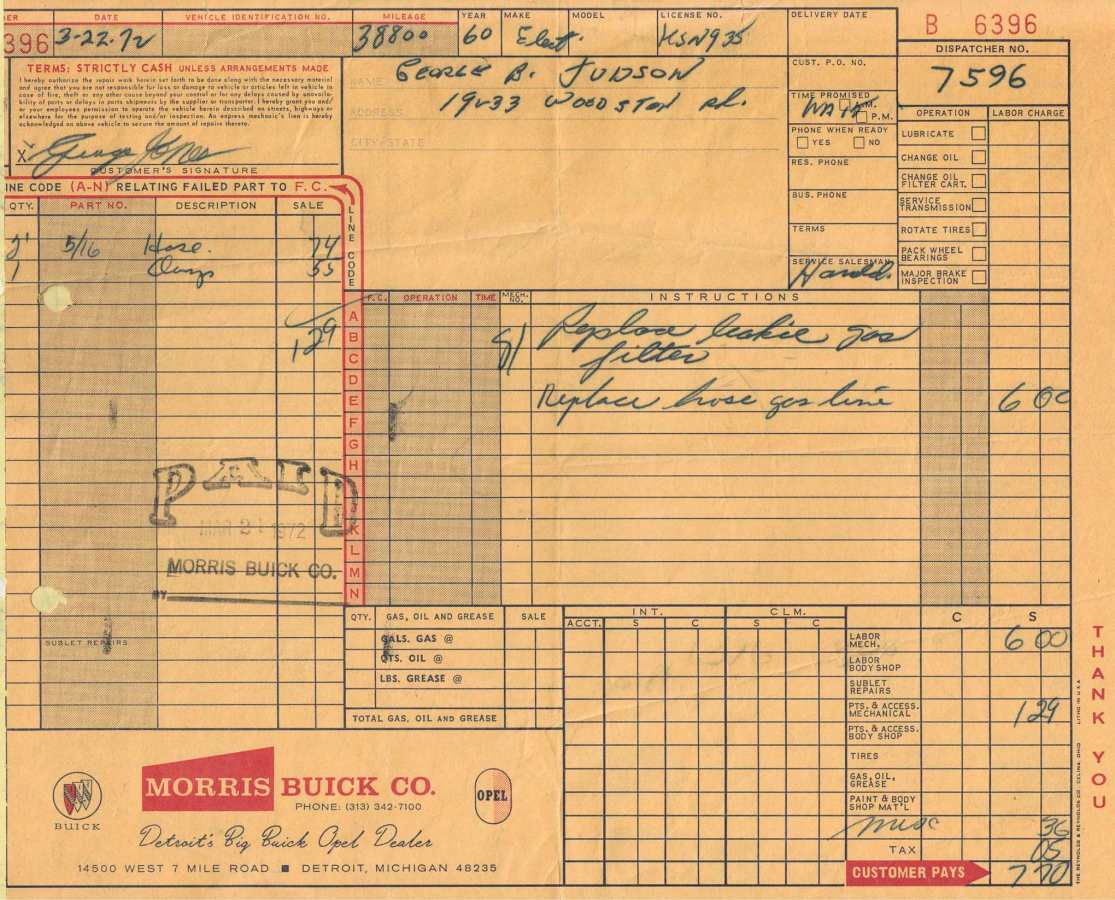 BER DATE VEHICLE IDENTIFICATION NO. MILEAGE YEAR MAKE MODEL LICENSE NO. DELIVERY DATE
396 3-22-72 38800 60 Elect. HSN935
B 6396
DISPATCHER NO.
7596
TERMS: STRICTLY CASH UNLESS ARRANGEMENTS MADE
I hereby authorize the repair work herein set forth to be done along with the necessary material
and agree that you are not responsible for loss or damage to vehicle or articles left in vehicle in
case of fire, theft or any other cause beyond your control or for any delays caused by unavaila-
bility of parts or delays in parts shipments by the supplier or transporter. I hereby grant you and/
or your employees permission to operate the vehicle herein described on streets, highways or
elsewhere for the purpose of testing and/or inspection. An express mechanic's lien is hereby
acknowledged on above vehicle to secure the amount of repairs thereto.
X George Jones
CUSTOMER'S SIGNATURE
NAME GEORGE B. JUDSON
ADDRESS 19233 WOODSTON Rd.
CITY-STATE
CUST. P.O. NO.
TIME PROMISED
A.M.
P.M.
PHONE WHEN READY
YES NO
RES. PHONE
BUS. PHONE
TERMS
SERVICE SALESMAN
Harold
OPERATION LABOR CHARGE
LUBRICATE
CHANGE OIL
CHANGE OIL
FILTER CART.
SERVICE
TRANSMISSION
ROTATE TIRES
PACK WHEEL
BEARINGS
MAJOR BRAKE
INSPECTION
INE CODE (A-N) RELATING FAILED PART TO F.C.
QTY. PART NO. DESCRIPTION SALE
LINE CODE
2' 5/16 Hose. 74
1 55
1 29
A
B
C
D
E
F
G
H
K
L
M
N
F.C. OPERATION TIME MECH. NO. INSTRUCTIONS
91 Replace leakie gas
filter
Replace hose gas line 6 00
PAID
MAR 21 1972
MORRIS BUICK CO.
BY
SUBLET REPAIRS
QTY. GAS, OIL AND GREASE SALE
GALS. GAS @
QTS. OIL @
LBS. GREASE @
TOTAL GAS, OIL AND GREASE
INT. CLM.
ACCT. S C S C
C S
LABOR
MECH. 6 00
LABOR
BODY SHOP
SUBLET
REPAIRS
PTS. & ACCESS.
MECHANICAL 1 29
PTS. & ACCESS.
BODY SHOP
TIRES
GAS, OIL,
GREASE
PAINT & BODY
SHOP MAT'L
misc 36
TAX 05
CUSTOMER PAYS 7 70
THANK YOU
THE REYNOLDS & REYNOLDS CO., CELINA, OHIO LITHO IN U.S.A.
BUICK
MORRIS BUICK CO.
PHONE: (313) 342-7100
OPEL
Detroit's Big Buick Opel Dealer
14500 WEST 7 MILE ROAD ■ DETROIT, MICHIGAN 48235